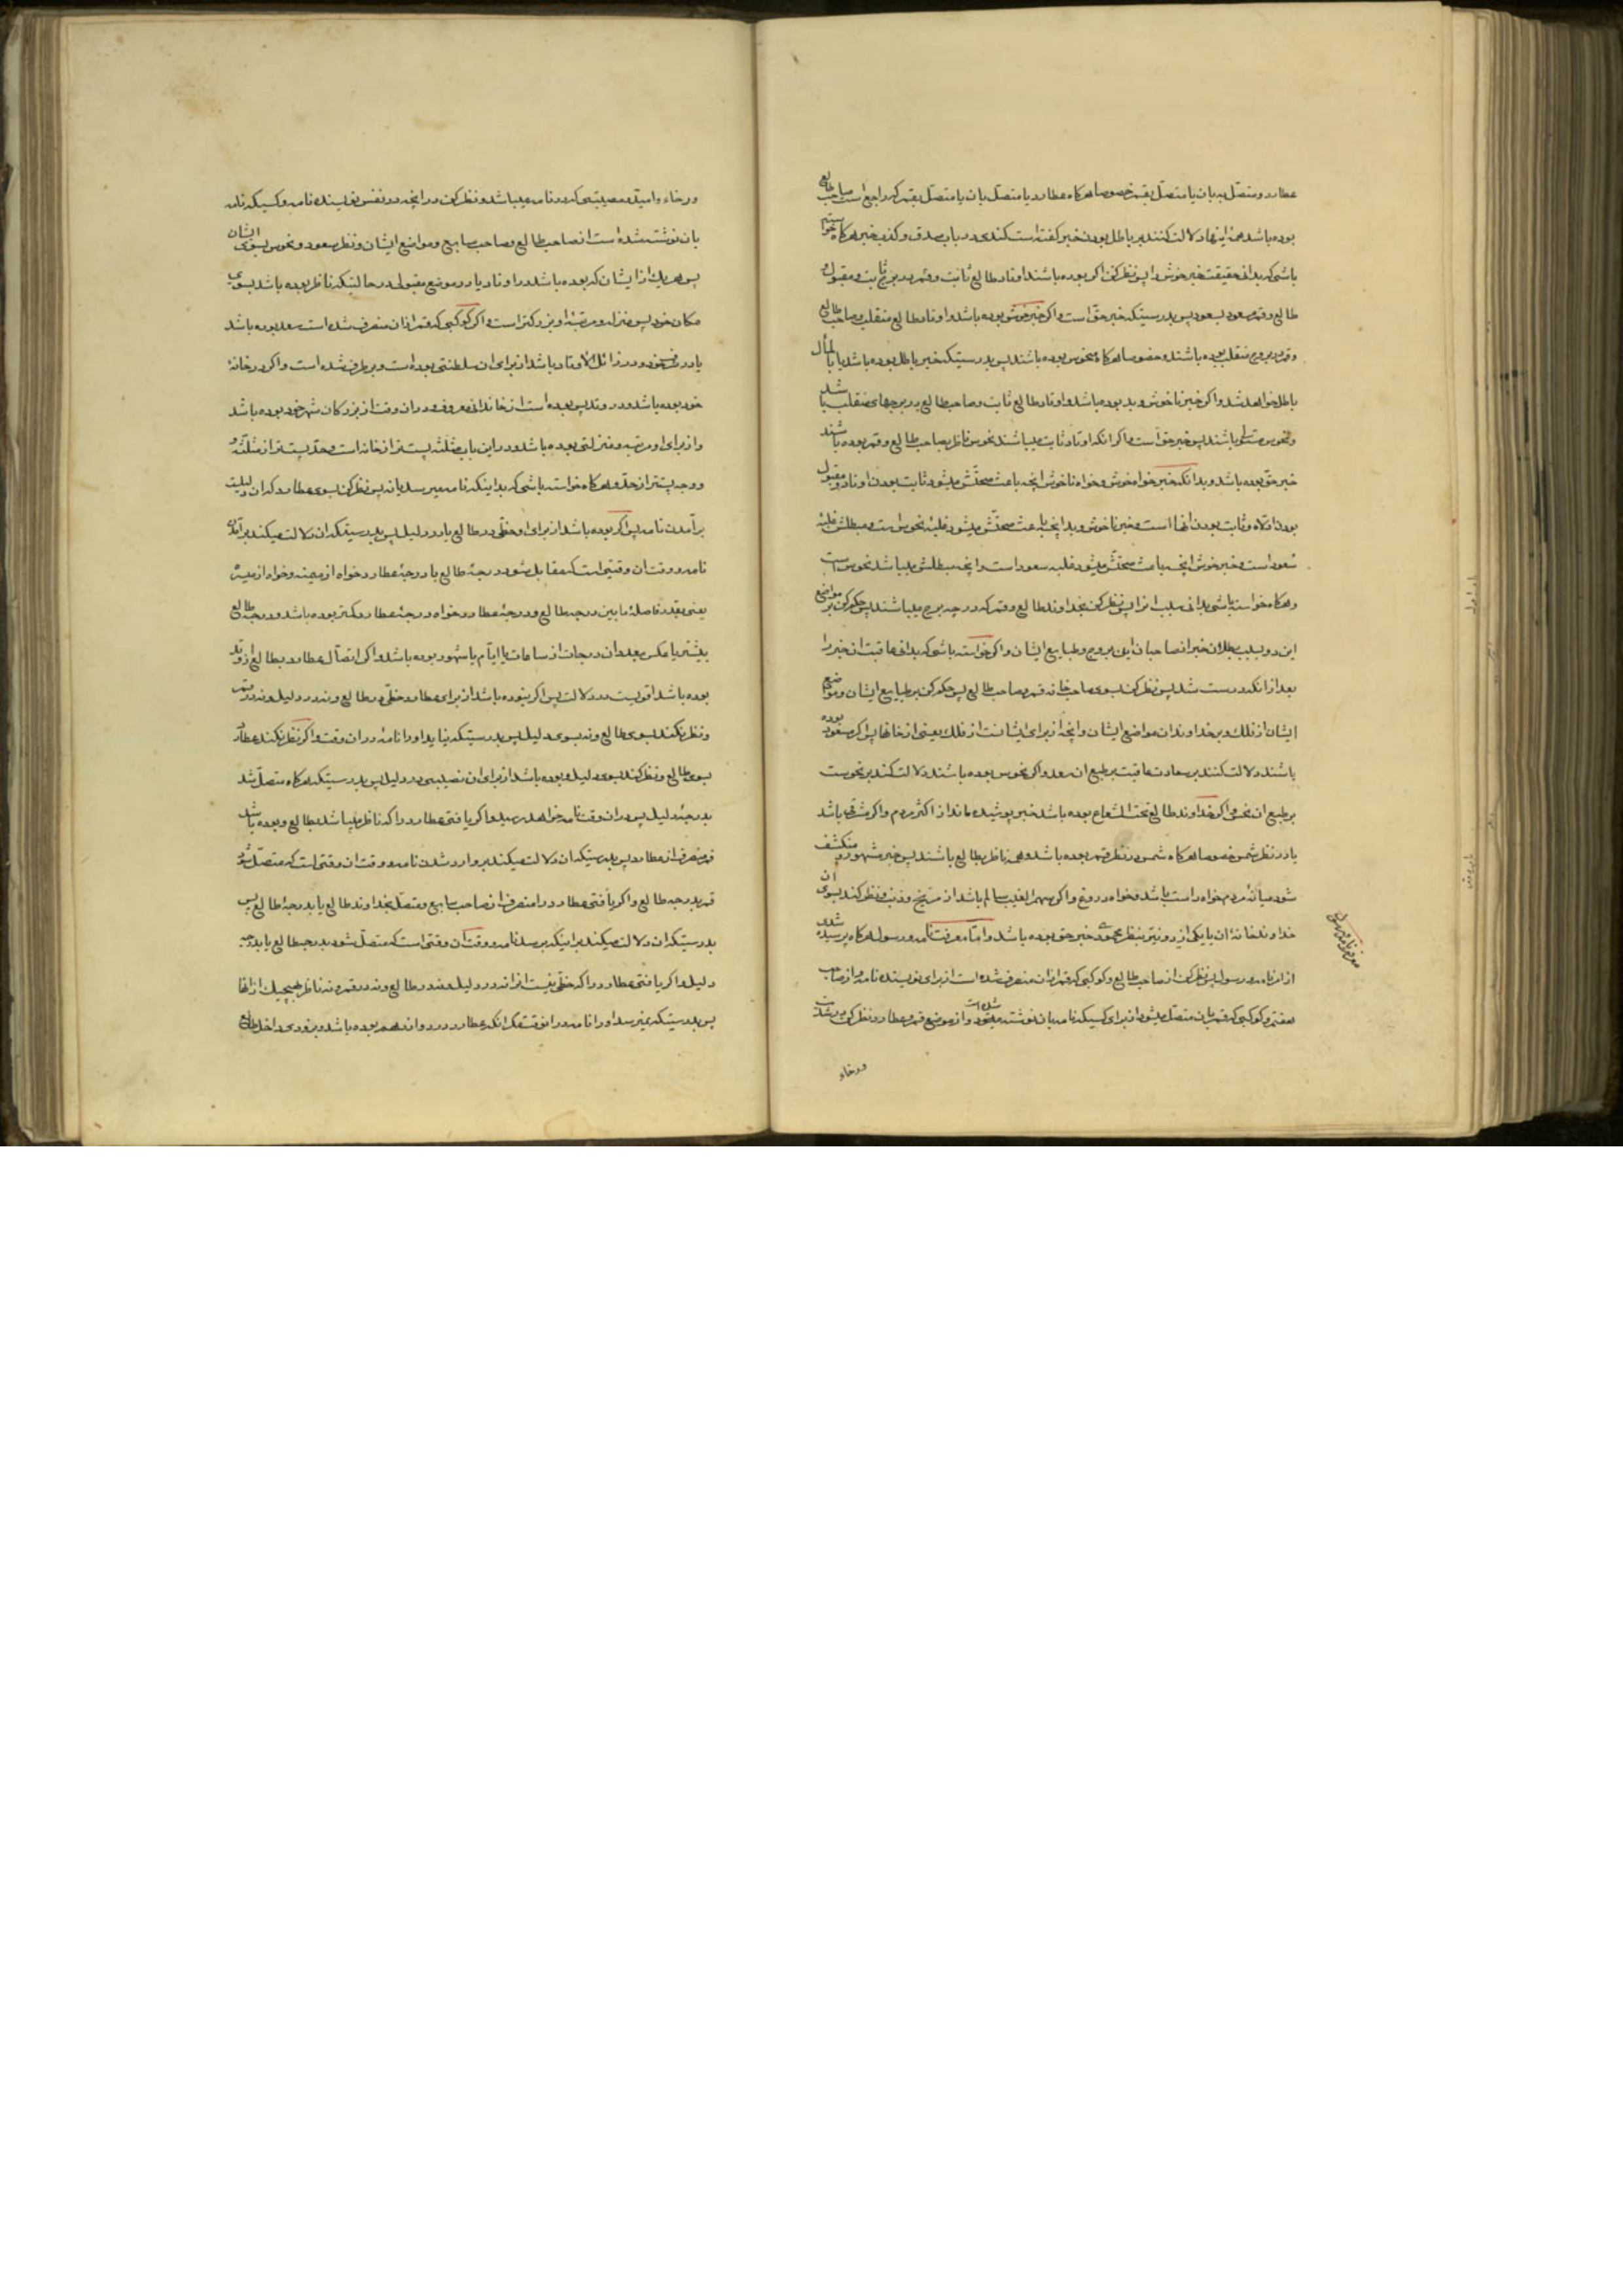 عطارد و متصل به بان یا متصل بقمر خصوصا هرگاه عطارد یا متصل بان یا متصل بقمر که راجع است صاحب طالع
بوده باشد همهٔ اینها دلالت کنند بر باطل بودن خبر گفته است کندی در باب صدق و کذب خبر هرگاه خواسته
باشی که بدانی حقیقت خبر خوش را پس نظر کن اگر بوده باشند اوتاد طالع ثابت و قمر در برج ثابت و مقبول و
طالع و قمر مسعود بسعود پس بدرستیکه خبر حق است و اگر خبر خوش بوده باشد و اوتاد طالع منقلب و صاحب طالع
و قمر در بروج منقلب بوده باشند و خصوصا هرگاه منحوس بوده باشند پس بدرستیکه خبر باطل بوده باشد یا بالمآل
باطل خواهد شد و اگر خبر ناخوش و بد بوده باشد و اوتاد طالع ثابت و صاحب طالع در برجهای منقلب باشد
و نحوس متسلی باشند پس خبر حق است و اگر آنکه اوتاد ثابت میباشند نحوس ناظر بصاحب طالع و قمر بوده باشند
خبر حق بوده باشد و بدانکه خبر خواه خوش و خواه ناخوش آنچه باعث صحتش میشود ثابت بودن اوتاد و مقبول
بودن ادلاء و ثابت بودن آنها است و خبر ناخوش و بد آنچه باعث صحتش میشود غلبهٔ نحوس است و مبطلش غلبهٔ
سعود است و خبر خوش آنچه باعث صحتش میشود غلبه سعود است و آنچه مبطلش میباشد نحوس است
و هرگاه خواسته باشی بدانی سبب آنرا پس نظر کن بخداوند طالع و قمر که در چه برج میباشند پس حکم کن بر مواضع
این دو بسبب بطلان خبر از صاحبان این بروج و طبایع ایشان و اگر خواسته باشی که بدانی عاقبت آن خبر را
بعد از آنکه درست شد پس نظر کن بسوی صاحب خانه قمر و صاحب طالع پس حکم کن بر طبایع ایشان و موضع
ایشان از فلک و بر خداوندان مواضع ایشان و آنچه از برای ایشانست از فلک یعنی از خانها پس اگر مسعود بوده
باشند دلالت کنند بر سعادت عاقبت بر طبع آن سعد و اگر نحوس بوده باشند دلالت کند بر نحوست
بر طبع آن نحس و اگر خداوند طالع تحت الشعاع بوده باشد خبر پوشیده ماند از اکثر مردم و اگر مشرقی باشد
یا در نظر شمس خصوصا هرگاه شمس در نظر قمر بوده باشد و هر دو ناظر بطالع باشند پس خبر مشهور و منکشف
شود میانهٔ مردم خواه راست باشد و خواه دروغ و اگر سهم الغیب سالم باشد از مریخ و ذنب و نظر کند بسوی آن
خداوند خانهٔ آن یا یکی از دو نیّر بنظر محمودی خبر حق بوده باشد و امّا معرفت نامه و رسول هرگاه پرسیده شدی
از امر نامه و رسول پس نظر کن از صاحب طالع و کوکبی که قمر از آن منصرف شده است از برای نویسنده نامه و از صاحب
هفتم و کوکبی که قمر بان متصل میشود از برای کسیکه نامه بان نوشته میشود شده است و از موضع قمر و عطارد و نظر کن در شدت
و رخاء
معرفة نامه و رسول
و رخاء و امید و مصیبتی که در نامه میباشد و نظر کن در آنچه در نفس نویسنده نامه و کسیکه نامه
بان نوشته شده است از صاحب طالع و صاحب سابع و مواضع ایشان و نظر سعود و نحوس بسوی ایشان
پس هر یک از ایشان که بوده باشد در اوتاد یا در موضع مقبولی در حالتیکه ناظر بوده باشد بسوی
مکان خود پس منزلت و مرتبهٔ او بزرگتر است و اگر کوکبی که قمر از آن منصرف شده است سعد بوده باشد
یا در شرف خود و در زائل الاوتاد باشد از برای آن سلطنتی بوده است و برطرف شده است و اگر در خانهٔ
خود بوده باشد و در وتد پس بوده است از خاندانی معروف و در آن وقت از بزرگان شهر خود بوده باشد
و از برای او مرتبه و منزلتی بوده باشد و در این باب مثلثه پست‌تر از خانه است و حدّ پست‌تر از مثلثه و
و وجه پست‌تر از حدّ و هرگاه خواسته باشی که بدانی که نامه میرسد یا نه پس نظر کن بسوی عطارد که آن دلیلست
بر آمدن نامه پس اگر بوده باشد از برای او حظّی در طالع یا در دلیل پس بدرستیکه آن دلالت میکند بر آمدن
نامه و وقت آن وقتی است که مقابل شود درجهٔ طالع با درجهٔ عطارد خواه از میمنه و خواه از میسره
یعنی بقدر فاصلهٔ ما بین درجه طالع و درجهٔ عطارد خواه درجهٔ عطارد کمتر بوده باشد و درجه طالع
بیشتر یا عکس بعدد آن درجات از ساعات یا ایّام یا شهور بوده باشد و اگر اتّصال عطارد بطالع از وتد
بوده باشد اقویست در دلالت پس اگر نبوده باشد از برای عطارد حظّی در طالع و نه در دلیل و نه در قمر
و نظر نکند بسوی طالع و نه بسوی دلیل پس بدرستیکه نیاید او را نامه در آن وقت و اگر نظر نکند عطارد
بسوی طالع و نظر کند بسوی دلیل و بوده باشد از برای آن نصیبی در دلیل پس بدرستیکه هرگاه متصل شد
بدرجهٔ دلیل پس در آن وقت نامه خواهد رسید و اگر یافتی عطارد را که ناظر میباشد بطالع و بوده باشد
قمر منصرف از عطارد پس بدرستیکه آن دلالت میکند بر وارد شدن نامه و وقت آن وقتی است که متصل شود
قمر بدرجه طالع و اگر یافتی عطارد را منصرف از صاحب سابع و متصل بخداوند طالع یا بدرجهٔ طالع پس
بدرستیکه آن دلالت میکند بر اینکه برسد نامه و وقت آن وقتی است که متصل شود بدرجه طالع یا بدرجه
دلیل و اگر یافتی عطارد را که حظّی نیست از آن نه در دلیل و نه در طالع و نه در قمر و نه ناظر بهیچیک از آنها
پس بدرستیکه نمیرسد او را نامه در آنوقت مگر آنکه عطارد در دوازدهم بوده باشد و بزودی داخل طالع